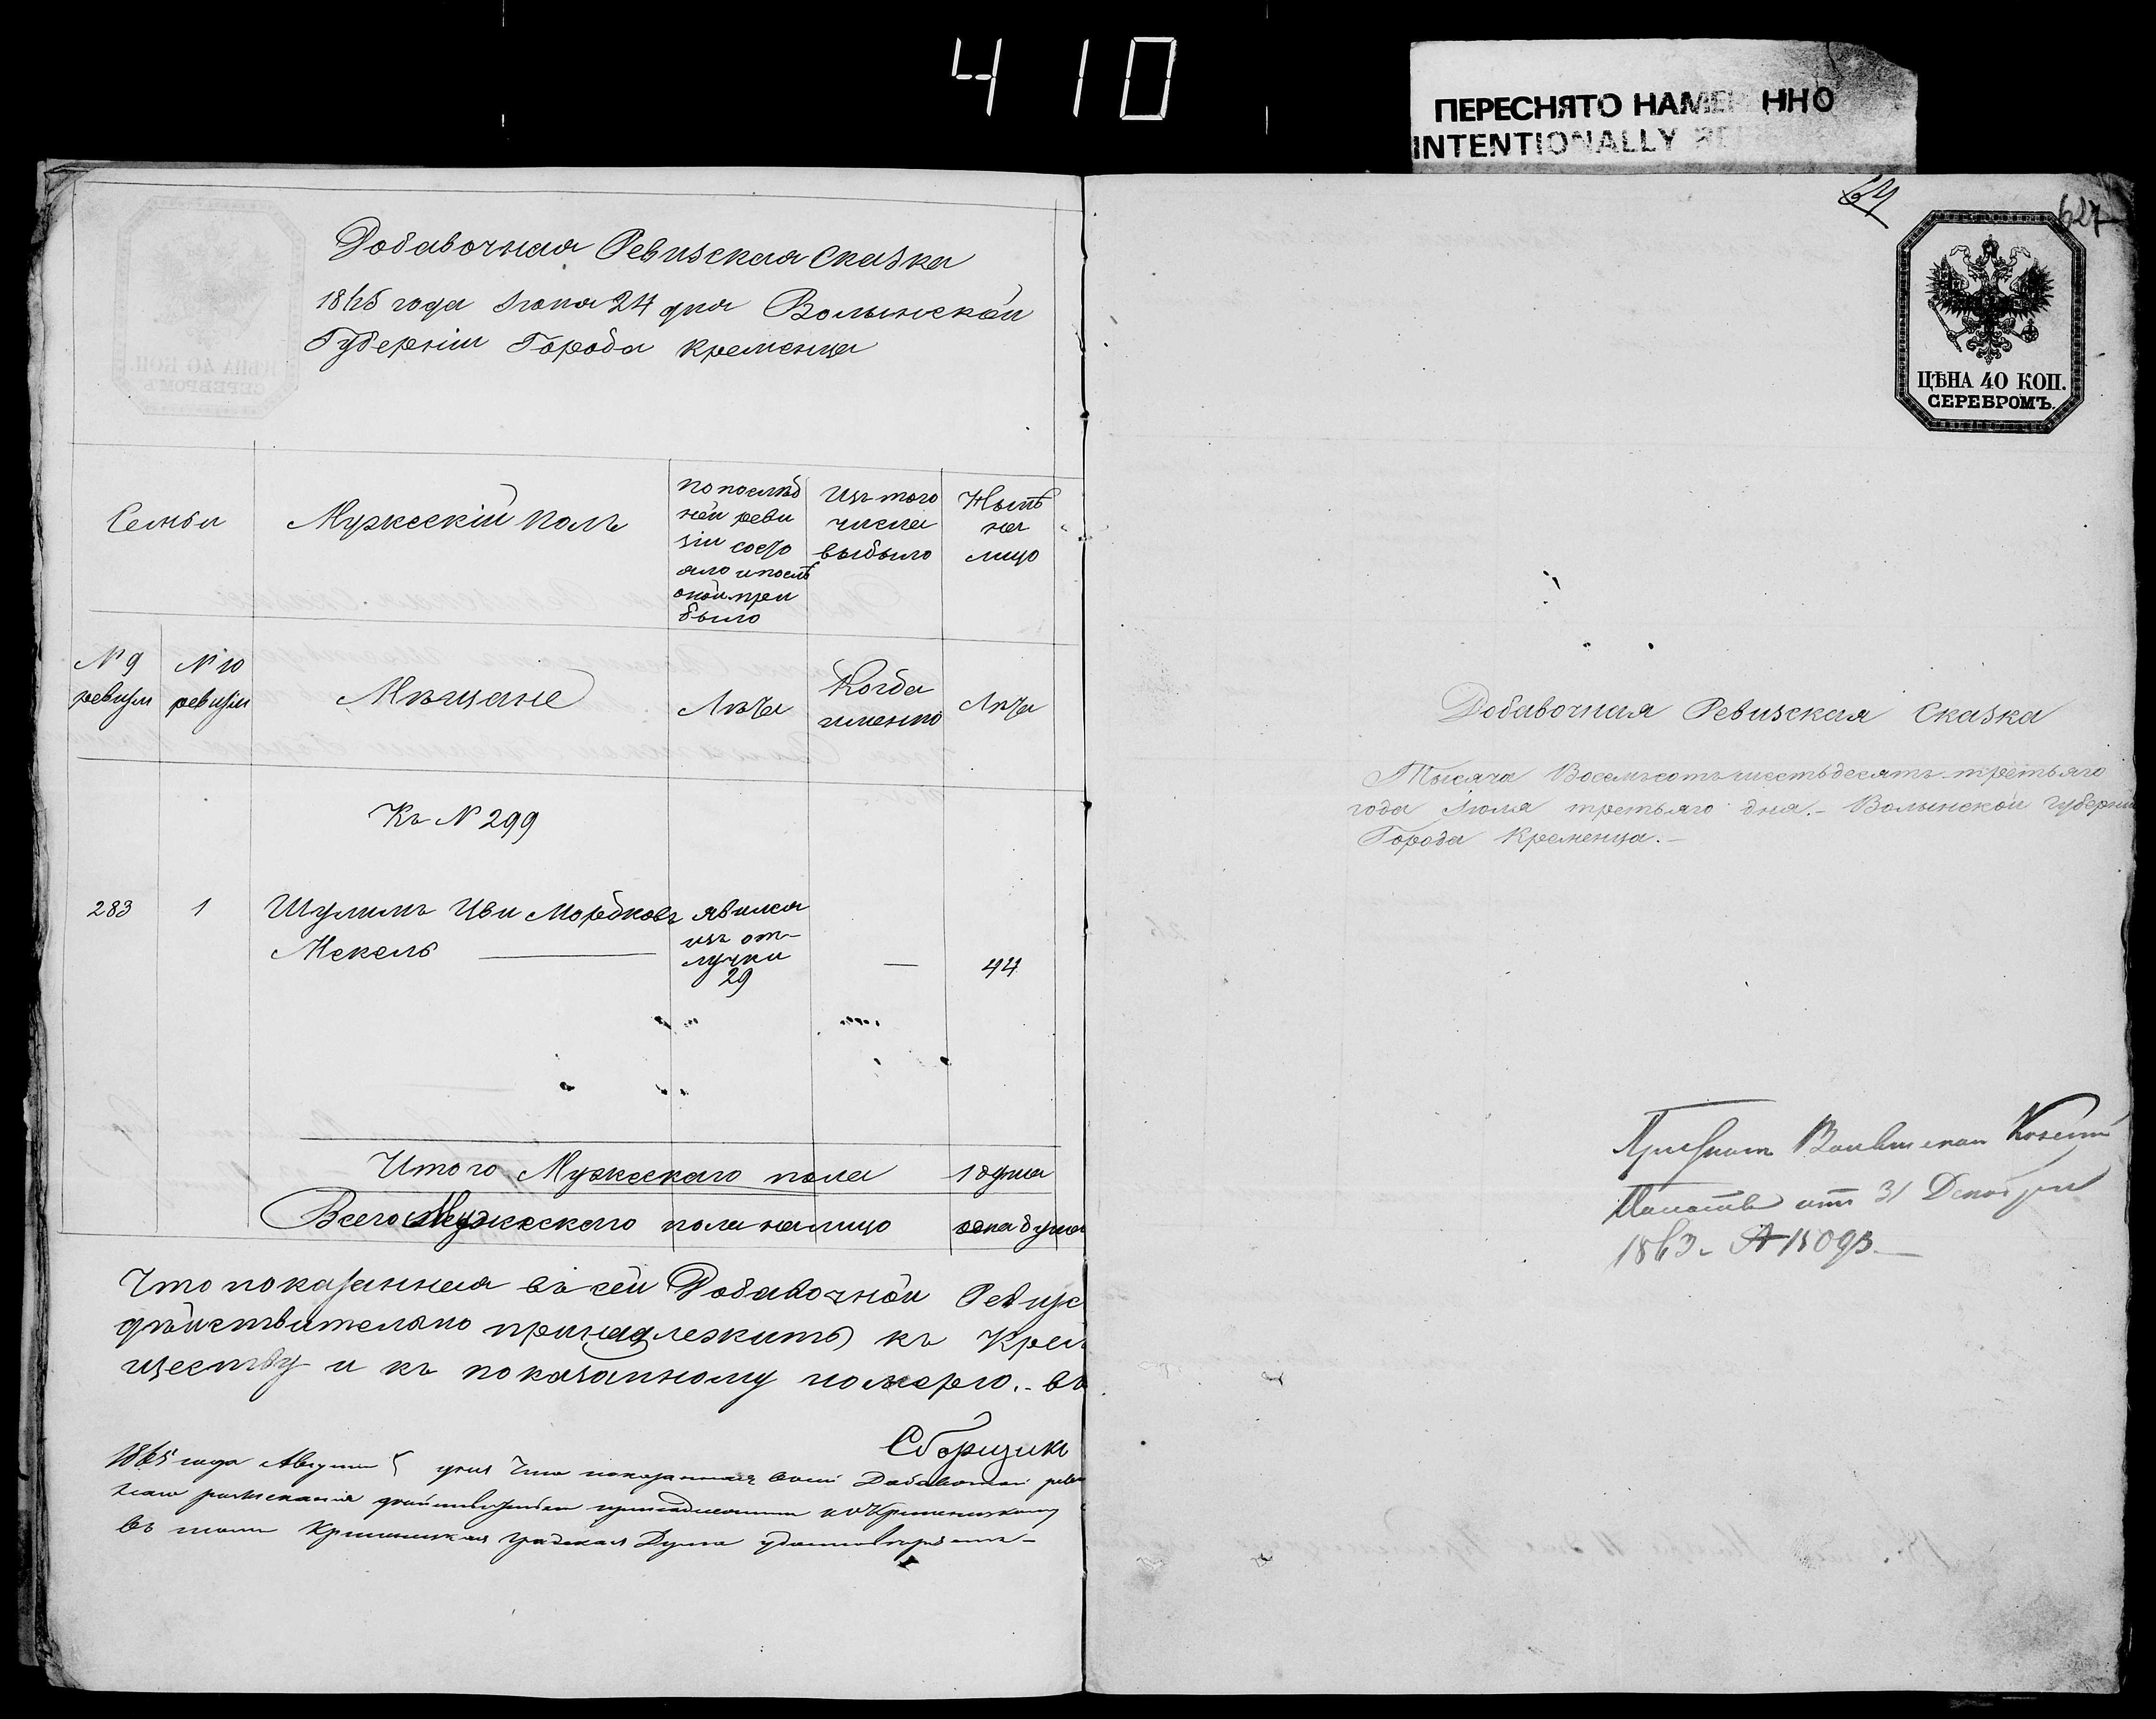 410
ПЕРЕСНЯТО НАМЕ ННО
INTENTIONALLY RE
Добавочная Ревизская Сказка
1865 года Іюня 24 дня Волынской
Губерніи Города Кременца
Семьи
Мужескій полъ
По послѣд
ней реви
зіи состо
яло и послѣ
оной при
было
Изъ того
числа
выбыло
Нынѣ
на
лицо
№ 9
ревизіи
№ 10
ревизіи
Мѣщане
Лѣта
Когда
именно
Лѣта
Къ № 299
283
1
Шулимъ Цви Мордковъ
Мекель
явился
изъ от-
лучки
29
—
44
Итого Мужескаго пола 1 душа
Всего Мужескаго пола налицо одна душа
Что показанная въ сей Добавочной Ревизс
дѣйствительно принадлежитъ къ Крем
ществу и къ показанному номеру.- въ
Сборщикъ
1865 года Августа 5 дня Что показанная въ сей Добавочной реви
дѣйствительно принадлежитъ къ Кременецкому
въ томъ Кременецкая градская Дума удостовѣряетъ-
64
627
ЦѢНА 40 КОП.
СЕРЕБРОМЪ.
Добавочная Ревизская Сказка
Тысяча Восемьсотъ шестьдесятъ третьяго
года Іюля третьяго дня.- Волынской Губерніи
Города Кременца.-
Волынской Казенной
Палаты отъ 31 Декабря
1863.